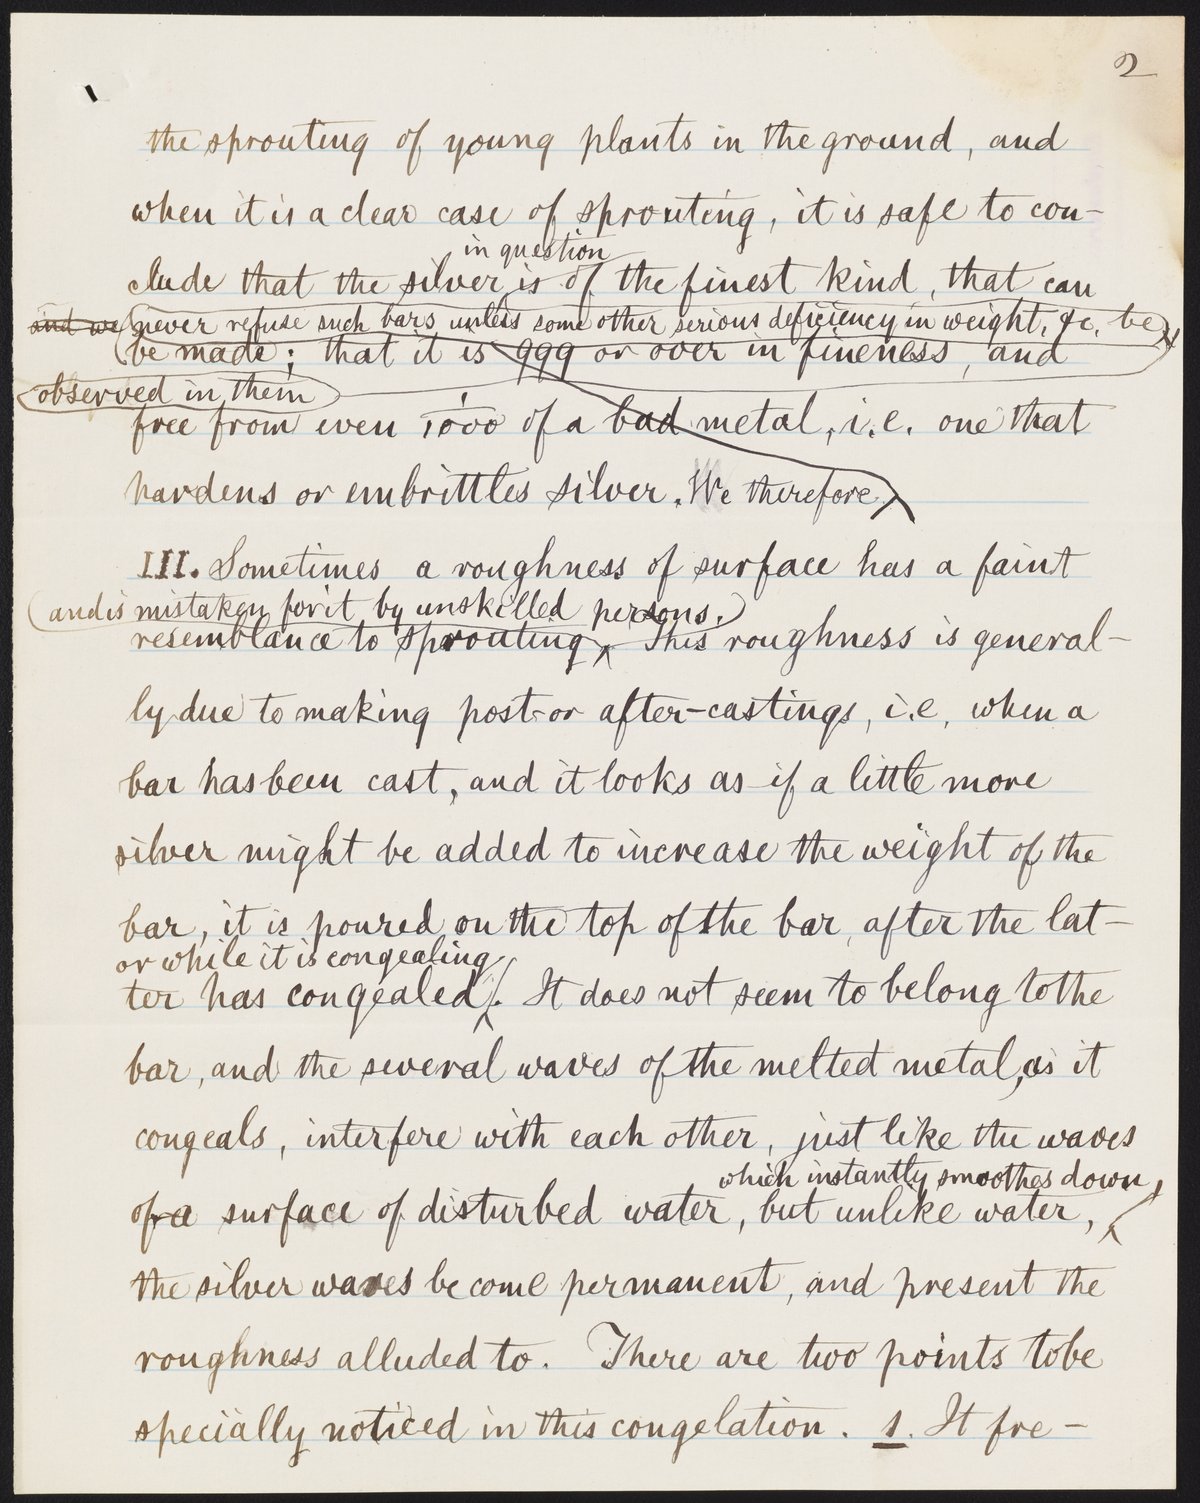 2
the sprouting of young plants in the ground, and
when it is a clear case of sprouting, it is safe to con-
in question
clude that the silver is of the finest kind, that can
and we never refuse such bars unless some other serious deficiency in weight, &c. be
be made; that it is 999 or over in fineness, and
observed in them
free from even 1/1000 of a bad metal, i.e. one that
hardens or embrittles silver. We therefore
III. Sometimes a roughness of surface has a faint
(and is mistaken for it by unskilled persons.)
resemblance to sprouting. This roughness is general-
ly due to making post- or after-castings, i.e, when a
bar has been cast, and it looks as if a little more
silver might be added to increase the weight of the
bar, it is poured on the top of the bar, after the lat-
or while it is congealing
ter has congealed. It does not seem to belong to the
bar, and the several waves of the melted metal, as it
congeals, interfere with each other, just like the waves
which instantly smoothes down,
of a surface of disturbed water, but unlike water,
the silver waves become permanent, and present the
roughness alluded to. There are two points to be
specially noticed in this congelation. 1. It fre-